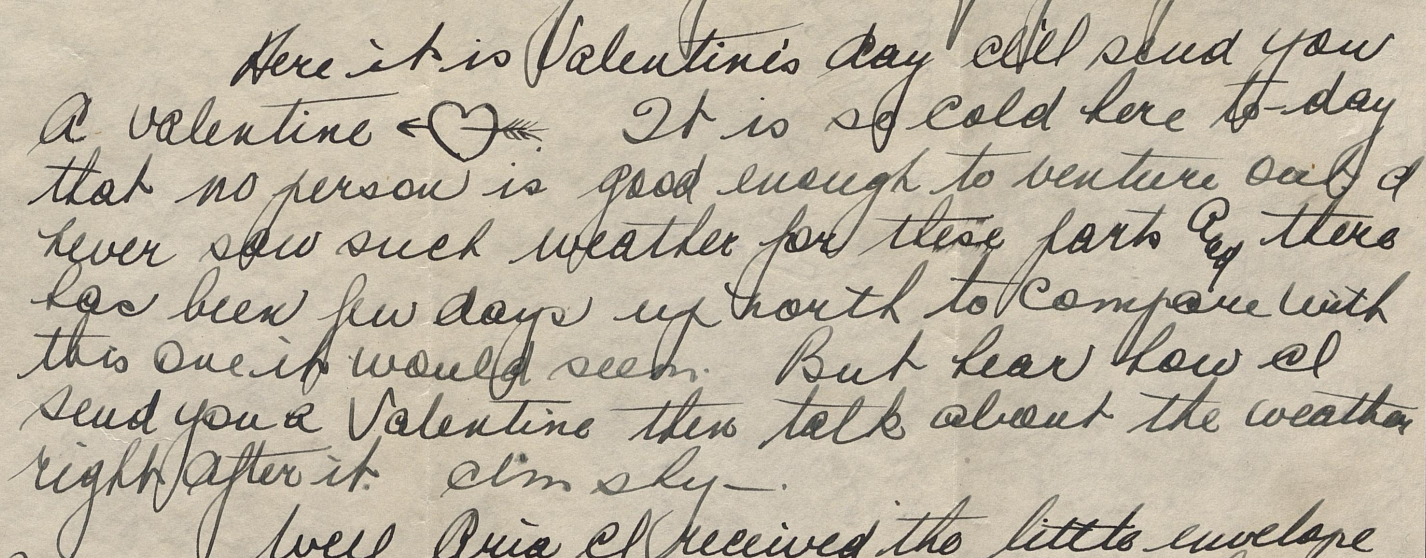 Here it is Valentine's day I'll send you
A valentine It is so cold here to-day
that no person is good enough to venture out I
never saw such weather for these parts And there
has been few days up north to compare with
this one it would seem. But hear how I
send you a Valentine then talk about the weather
right after it. I'm shy—.
Well I received the little envelope